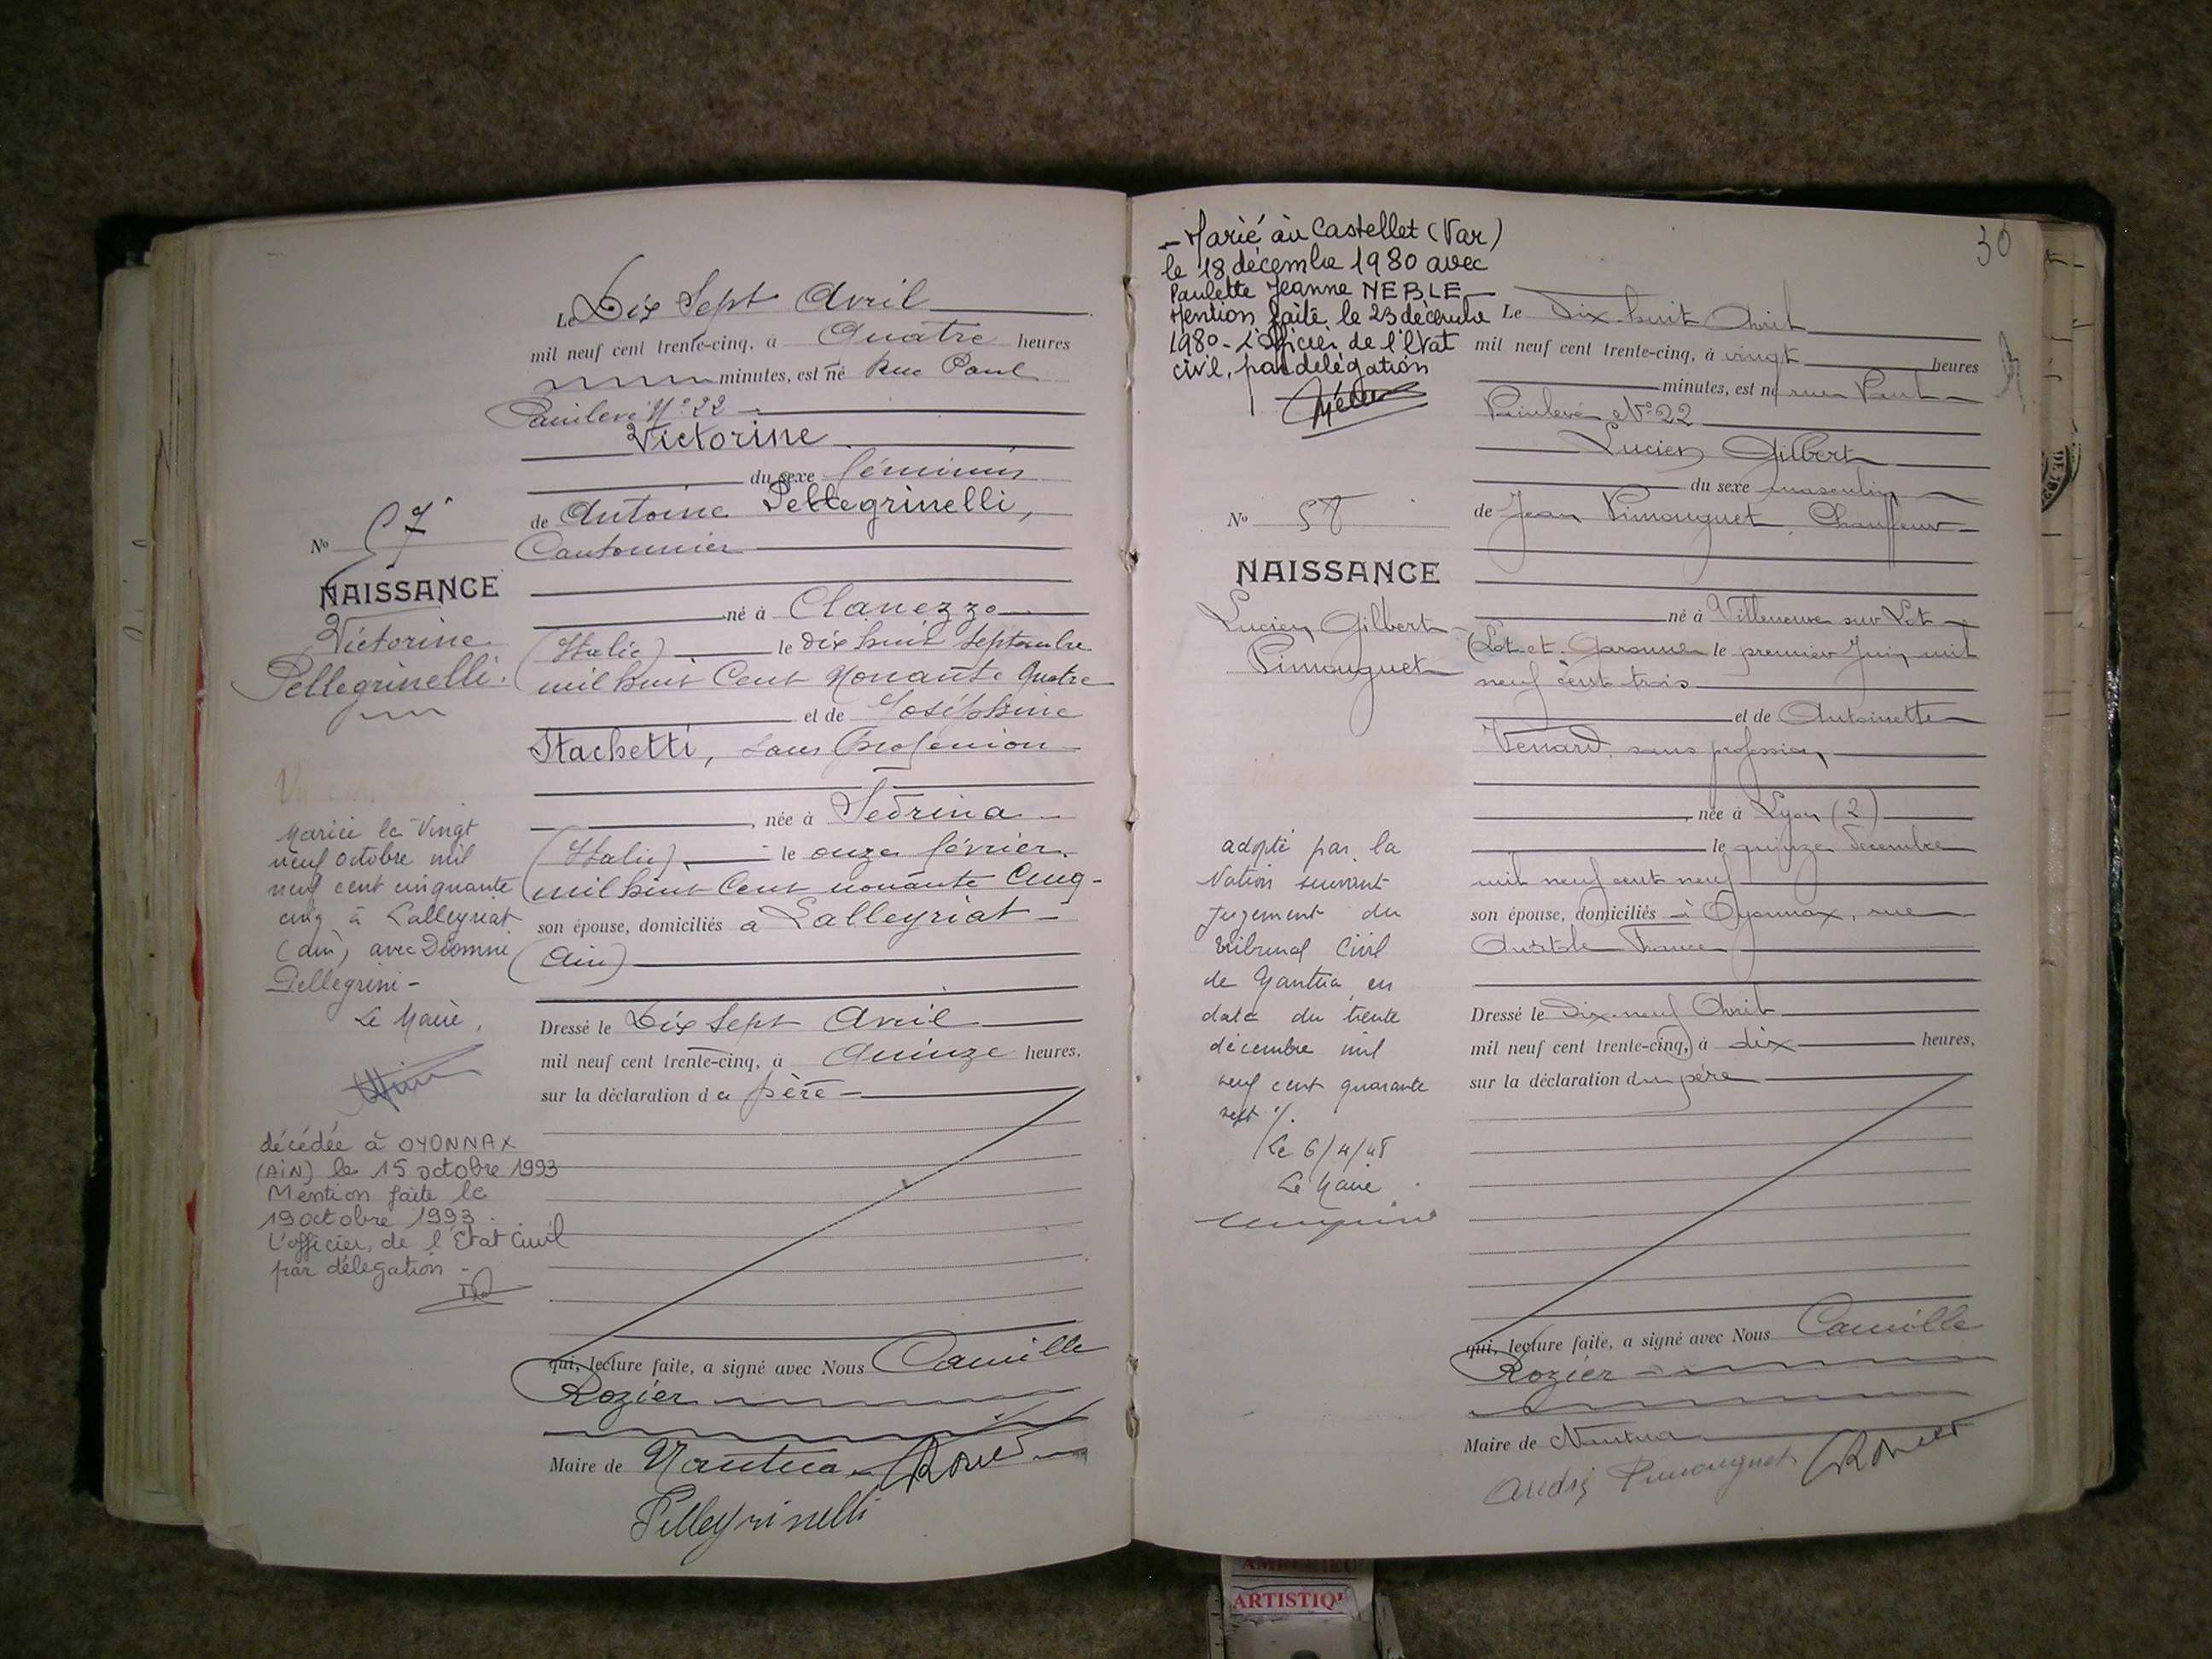 Le Dix Sept Avril
mil neuf cent trente-cinq, à Quatre heures
minutes, est né Rue Paul
Painlevé N° 22
Victorine
du sexe féminin
de Antoine Pellegrinelli,
Cantonnier
né à Clanezzo
(Italie) le dix huit Septembre
mil huit Cent Nonante Quatre
et de Joséphine
Stachetti, sans profession
, née à Sedrina
(Italie) le onze février
mil huit Cent nonante Cinq
son épouse, domiciliés à Lalleyriat
(Ain)
Dressé le Dix Sept Avril
mil neuf cent trente-cinq, à Quinze heures,
sur la déclaration du père
qui, lecture faite, a signé avec Nous Camille
Rozier
Maire de Nantua
Pellegrinelli
No 57
NAISSANCE
Victorine
Pellegrinelli.
Mariée le Vingt
neuf octobre mil
neuf cent cinquante
cinq à Lalleyriat
(ain) avec
Pellegrini -
Le Maire,
décédée à OYONNAX
(AIN) le 15 octobre 1993
Mention faite le
19 octobre 1993.
L'officier, de l'Etat Civil
par délégation -
30
- Marié au Castellet (Var)
le 18 décembre 1980 avec
Paulette Jeanne NEBLE
Mention faite le 23 décembre
1980 - L'Officier de l'Etat
civil, par délégation
Le Dix huit Avril
mil neuf cent trente-cinq, à vingt heures
minutes, est né rue Paul
Painlevé N° 22
Lucien Gilbert
du sexe masculin
de Jean Pimouguet, Chauffeur
né à Villeneuve sur Lot
(Lot et Garonne le premier Juin mil
neuf cent trois
et de Antoinette
Venard, sans profession
, née à Lyon (2)
le quinze Décembre
mil neuf cent neuf
son épouse, domiciliés à Oyonnax, rue
Anatole France
Dressé le Dix-neuf Avril
mil neuf cent trente-cinq, à dix heures,
sur la déclaration du père
qui, lecture faite, a signé avec Nous Camille
Rozier
Maire de Nantua
André Pimouguet
No 58
NAISSANCE
Lucien Gilbert
Pimouguet
adopté par la
Nation suivant
jugement du
tribunal Civil
de Nantua en
date du trente
décembre mil
neuf cent quarante
sept ./.
Le 6/4/48
Le Maire
ARTISTIQ